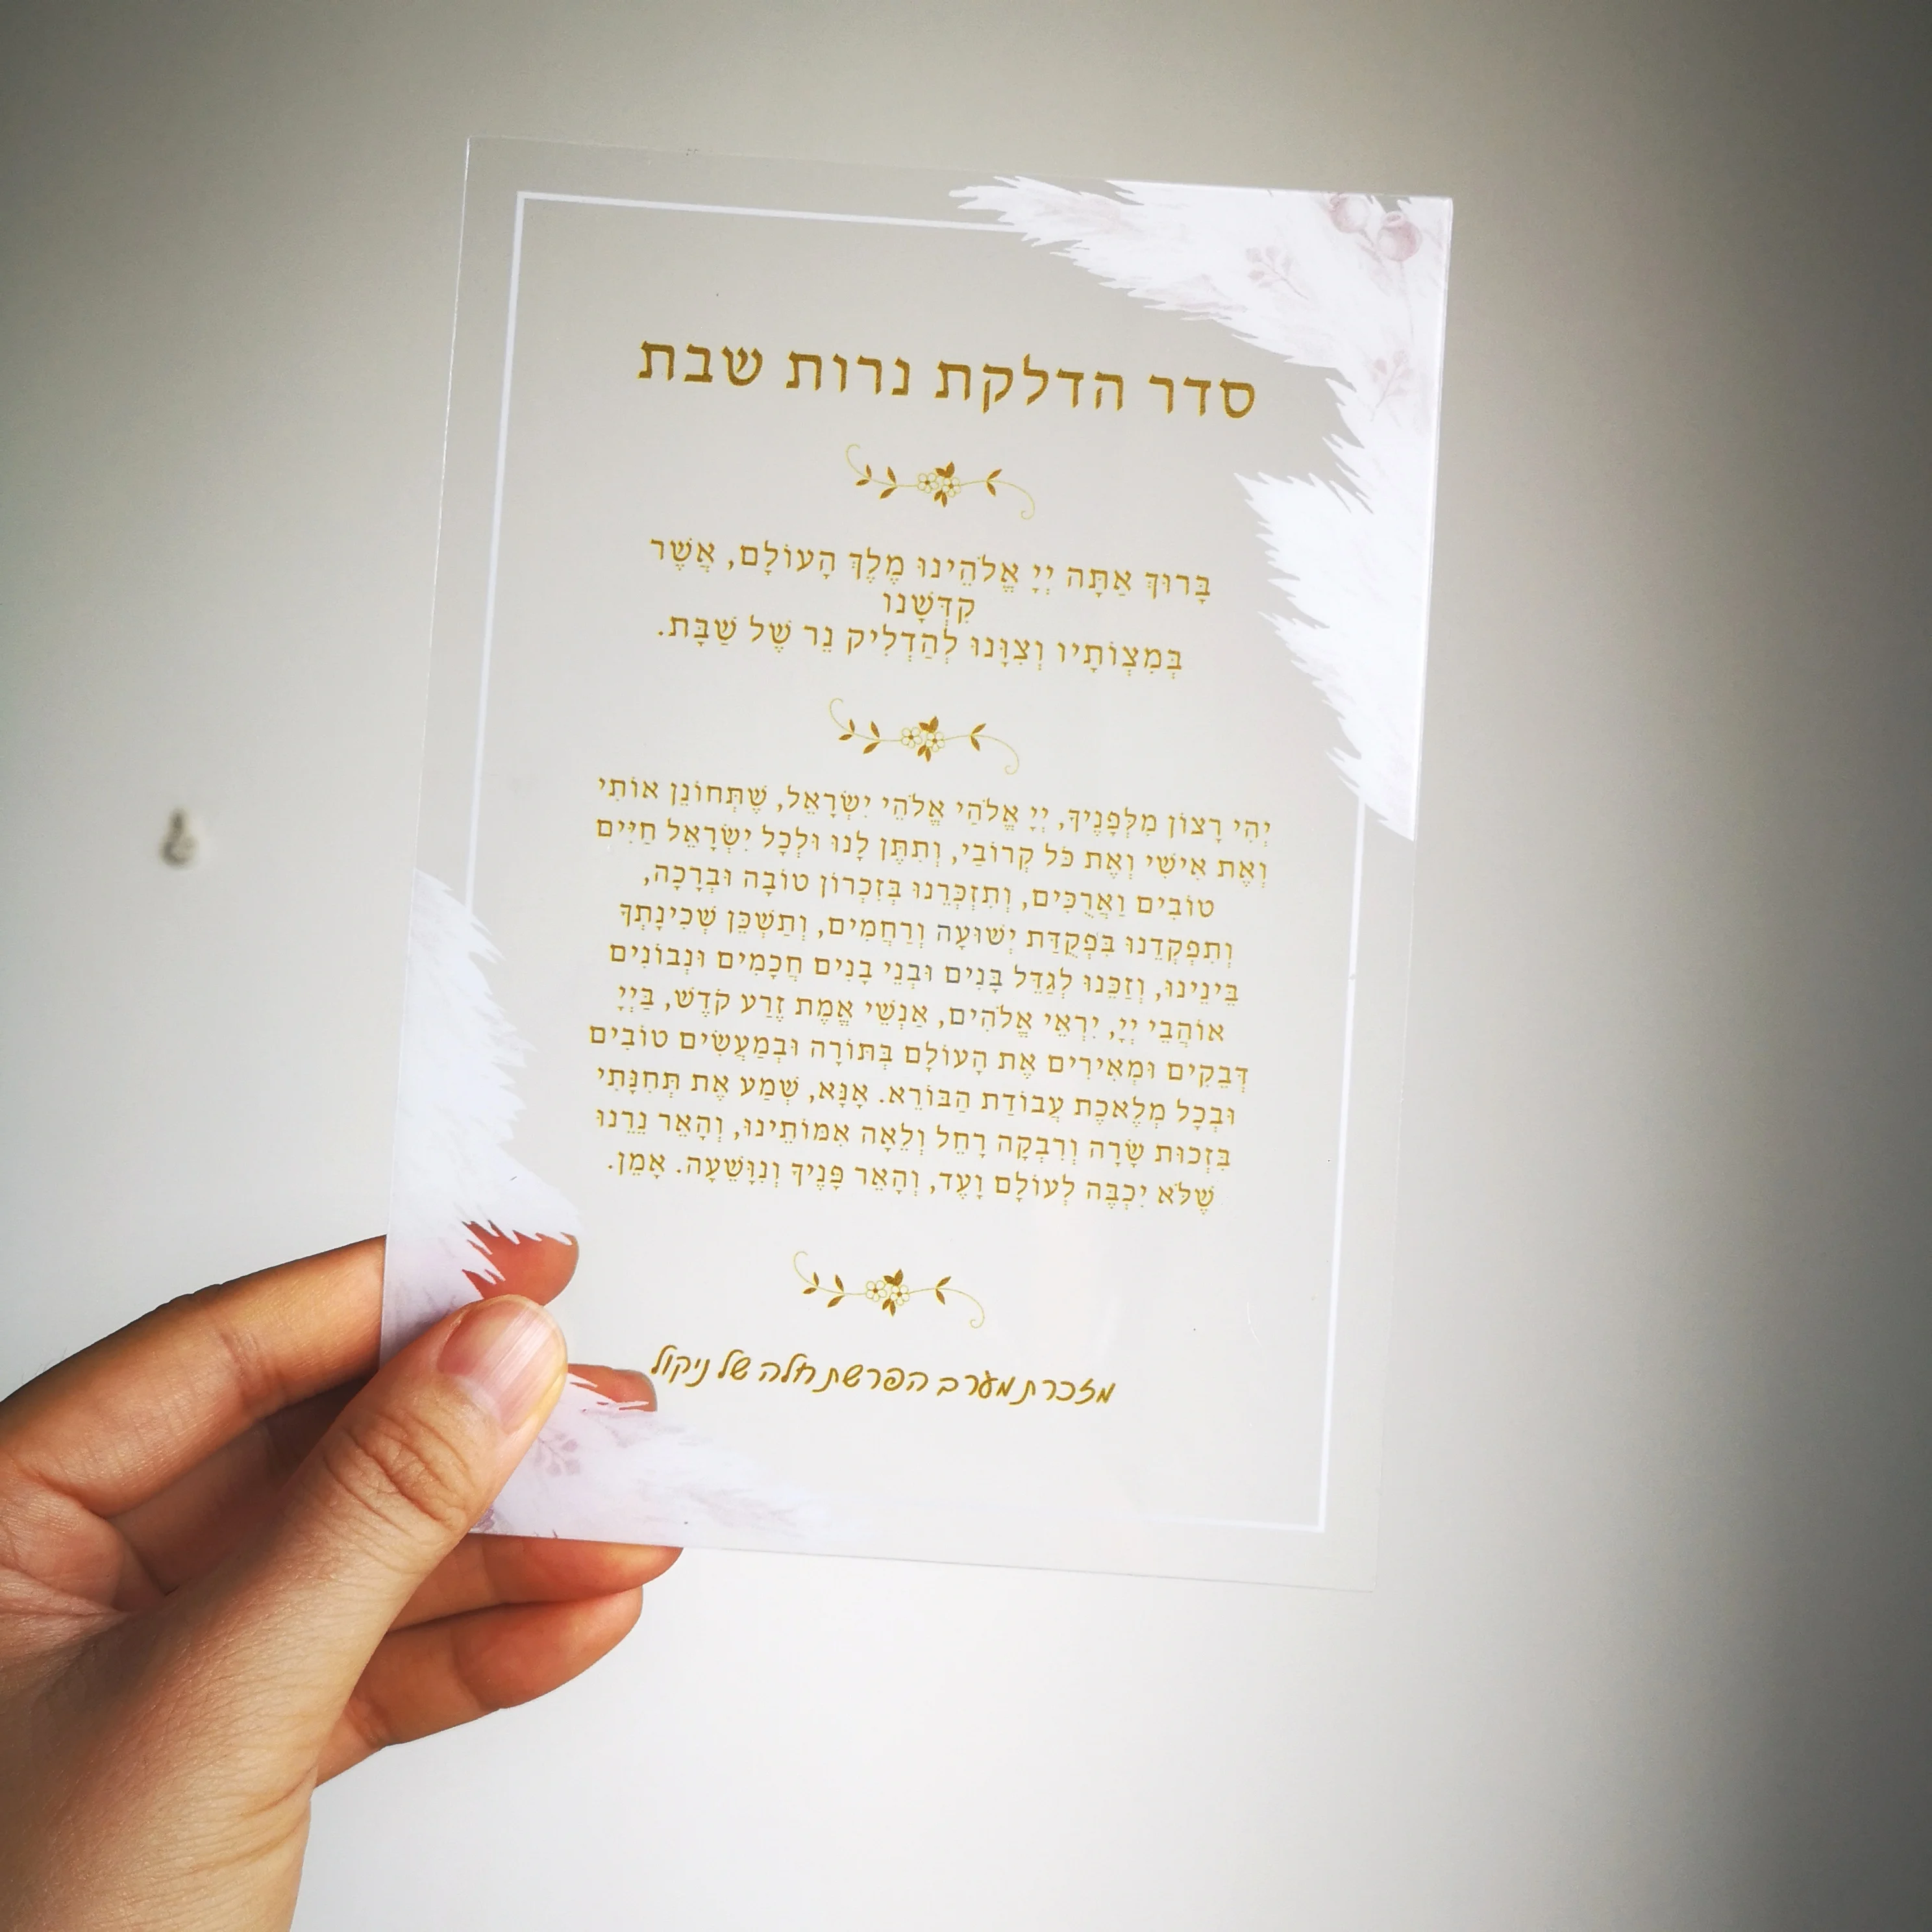 סדר הדלקת נרות שבת
בָּרוּךְ אַתָּה יְיָ אֱלֹהֵינוּ מֶלֶךְ הָעוֹלָם, אֲשֶׁר
קִדְּשָׁנוּ
בְּמִצְוֹתָיו וְצִוָּנוּ לְהַדְלִיק נֵר שֶׁל שַׁבָּת.
יְהִי רָצוֹן מִלְּפָנֶיךָ, יְיָ אֱלֹהַי אֱלֹהֵי יִשְׂרָאֵל, שֶׁתְּחוֹנֵן אוֹתִי
וְאֶת אִישִׁי וְאֶת כֹּל קְרוֹבַי, וְתִתֵּן לָנוּ וּלְכָל יִשְׂרָאֵל חַיִּים
טוֹבִים וַאֲרֻכִּים, וְתִזְכְּרֵנוּ בְּזִכְרוֹן טוֹבָה וּבְרָכָה,
וְתִפְקְדֵנוּ בִּפְקֻדַּת יְשׁוּעָה וְרַחֲמִים, וְתַשְׁכֵּן שְׁכִינָתְךָ
בֵּינֵינוּ, וְזַכֵּנוּ לְגַדֵּל בָּנִים וּבְנֵי בָנִים חֲכָמִים וּנְבוֹנִים
אוֹהֲבֵי יְיָ, יִרְאֵי אֱלֹהִים, אַנְשֵׁי אֱמֶת זֶרַע קֹדֶשׁ, בַּיְיָ
דְּבֵקִים וּמְאִירִים אֶת הָעוֹלָם בְּתּוֹרָה וּבְמַעֲשִׂים טוֹבִים
וּבְכָל מְלֶאכֶת עֲבוֹדַת הַבּוֹרֵא. אָנָּא, שְׁמַע אֶת תְּחִנָּתִי
בִּזְכוּת שָׂרָה וְרִבְקָה רָחֵל וְלֵאָה אִמּוֹתֵינוּ, וְהָאֵר נֵרֵנוּ
שֶׁלֹּא יִכְבֶּה לְעוֹלָם וָעֶד, וְהָאֵר פָּנֶיךָ וְנִוָּשֵׁעָה. אָמֵן.
מזכרת מערב הפרשת חלה של ניקול